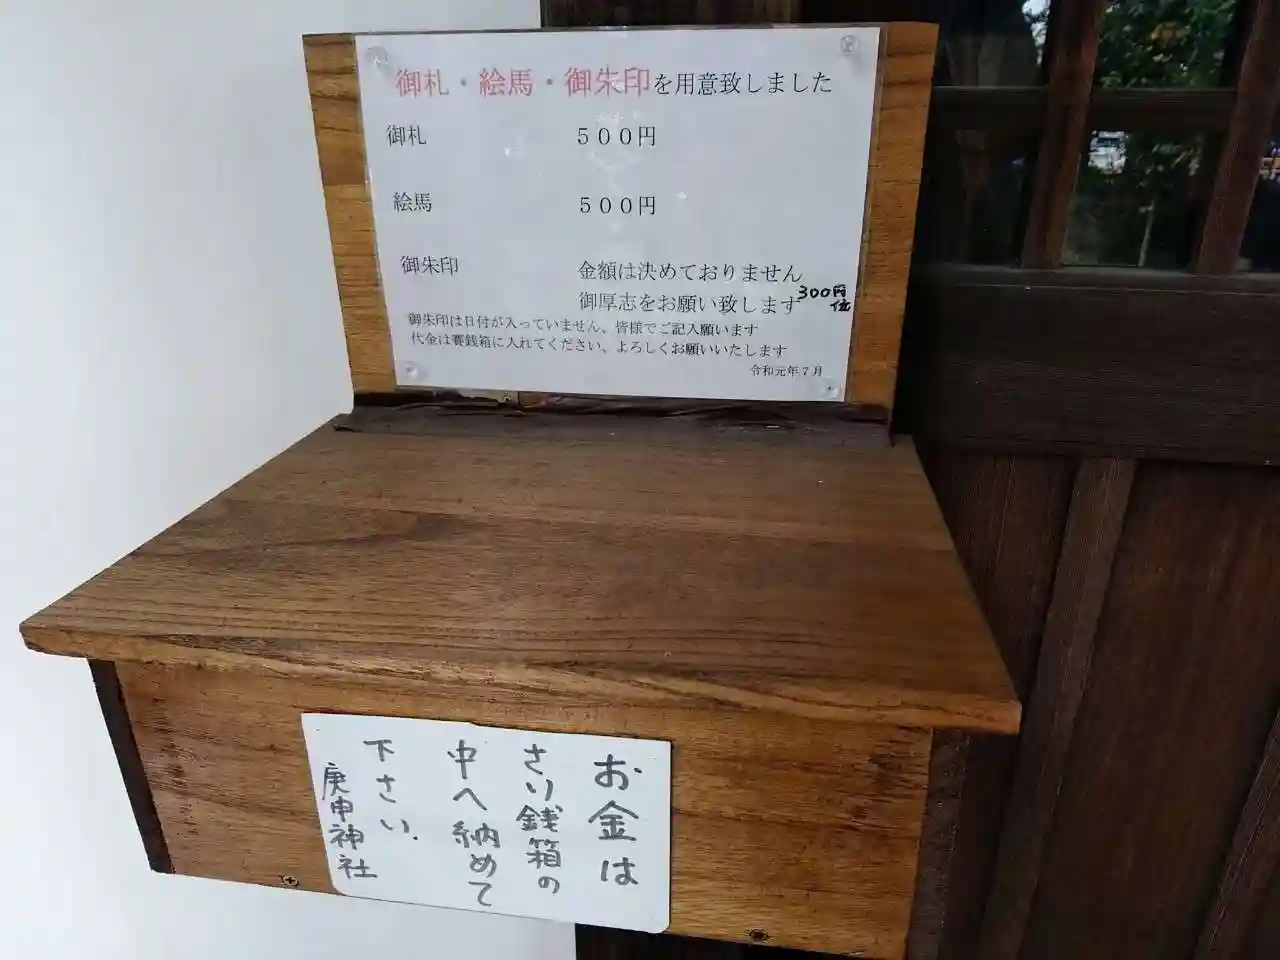 御札・絵馬・御朱印を用意致しました
御札　５００円
絵馬　５００円
御朱印　金額は決めておりません
御厚志をお願い致します 300円位
御朱印は日付が入っていません、皆様でご記入願います
代金は賽銭箱に入れてください、よろしくお願いいたします
令和元年７月
お金は
さい銭箱の
中へ納めて
下さい.
庚申神社